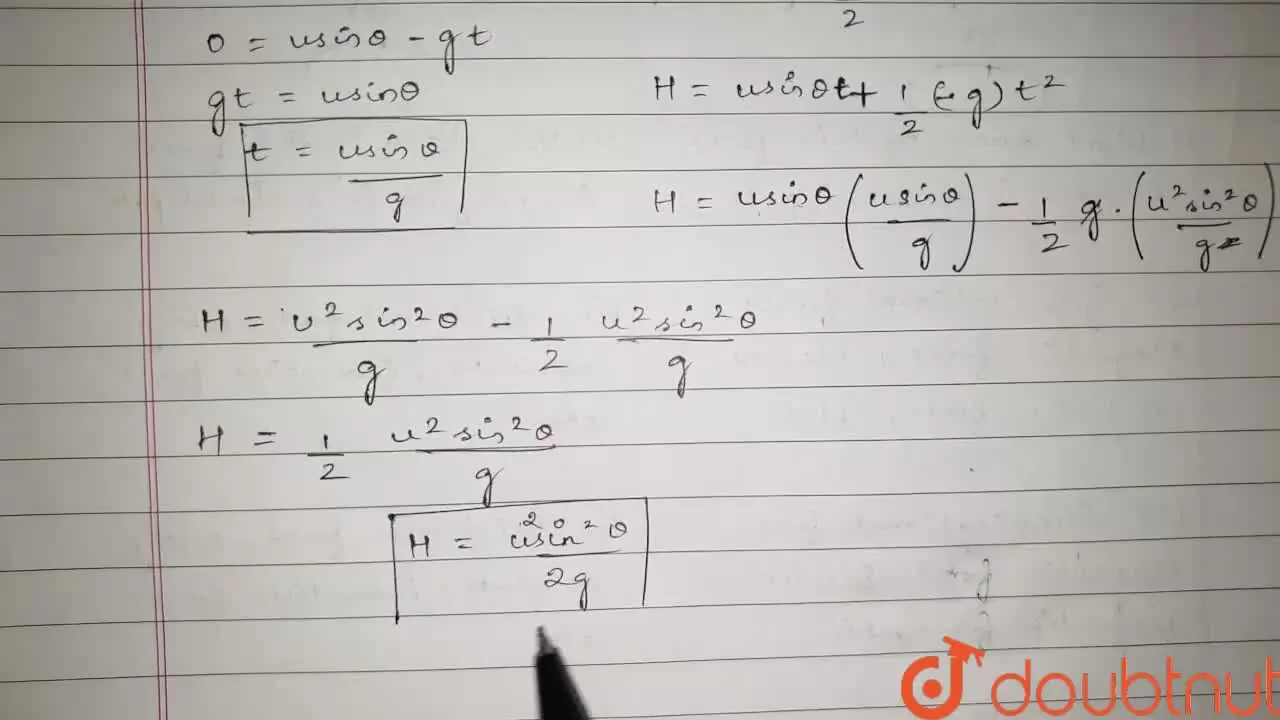 2
0 = usinθ - gt
gt = usinθ
t = usinθ/g
H = usinθt + 1/2 (-g) t²
H = usinθ (usinθ/g) - 1/2 g . (u²sin²θ/g²)
H = u²sin²θ/g - 1/2 u²sin²θ/g
H = 1/2 u²sin²θ/g
H = u²sin²θ/2g
doubtnut